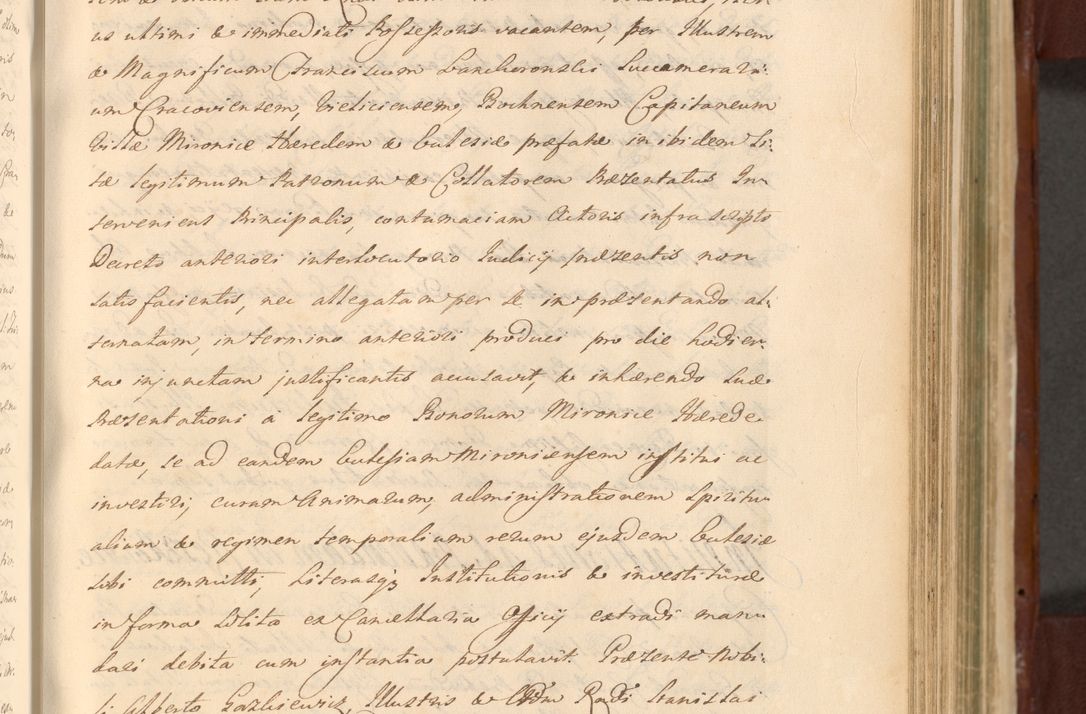 us ultimi & immediati Possessoris vacantem, per Illustrem
& Magnificum Franciscum Lanckoronski Succamerari:
um Cracoviensem, Vieliciensem, Bochnensem Capitaneum
Villæ Mironice Hæredem & Eulesiæ præfatæ in ibidem Si:
tæ legitimum Patronum & Collatorem Præsentatus In-
terveniens Principalis, contumaciam Actoris infrascripti
Decreto anteriori interlocutorio Judicij præsentis non
satisfacientis, nec allegatam per se in præsentando al:
ternatam, in termino anteriori produci pro die hodier-
na injunctam justificantis accusavit, & inhærendo Suæ
Præsentationi a legitimo Bonorum Mironice Hærede
datæ, se ad eandem Eulesiam Mironiensem institui ac
investiri, curam Animarum, administrationem Spiritu
alium & regimen temporalium rerum ejusdem Eulesiæ
sibi committi, Literasq3 Institutionis & investituræ
in forma solita ex Cancellaria Officij extradi manu
dari debita cum instantia postulavit. Præsente Nobi:
li Alberto Gazkiewicz, Illustris & Adm Rndi Stanislai